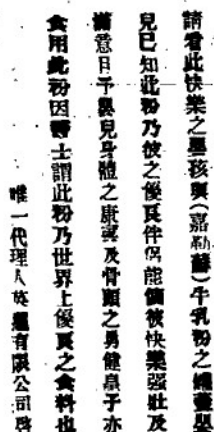 請看此快樂之嬰孩與(嘉勒蘇)牛乳粉之罐嬰
兒已知此粉乃彼之優良伴侶能備彼快樂强壯及
滿意日予嬰兒身體之康寧及骨頭之勇健皇子亦
食用此粉因醫士謂此粉乃世界上優良之食料也
唯一代理人英有限公司啓